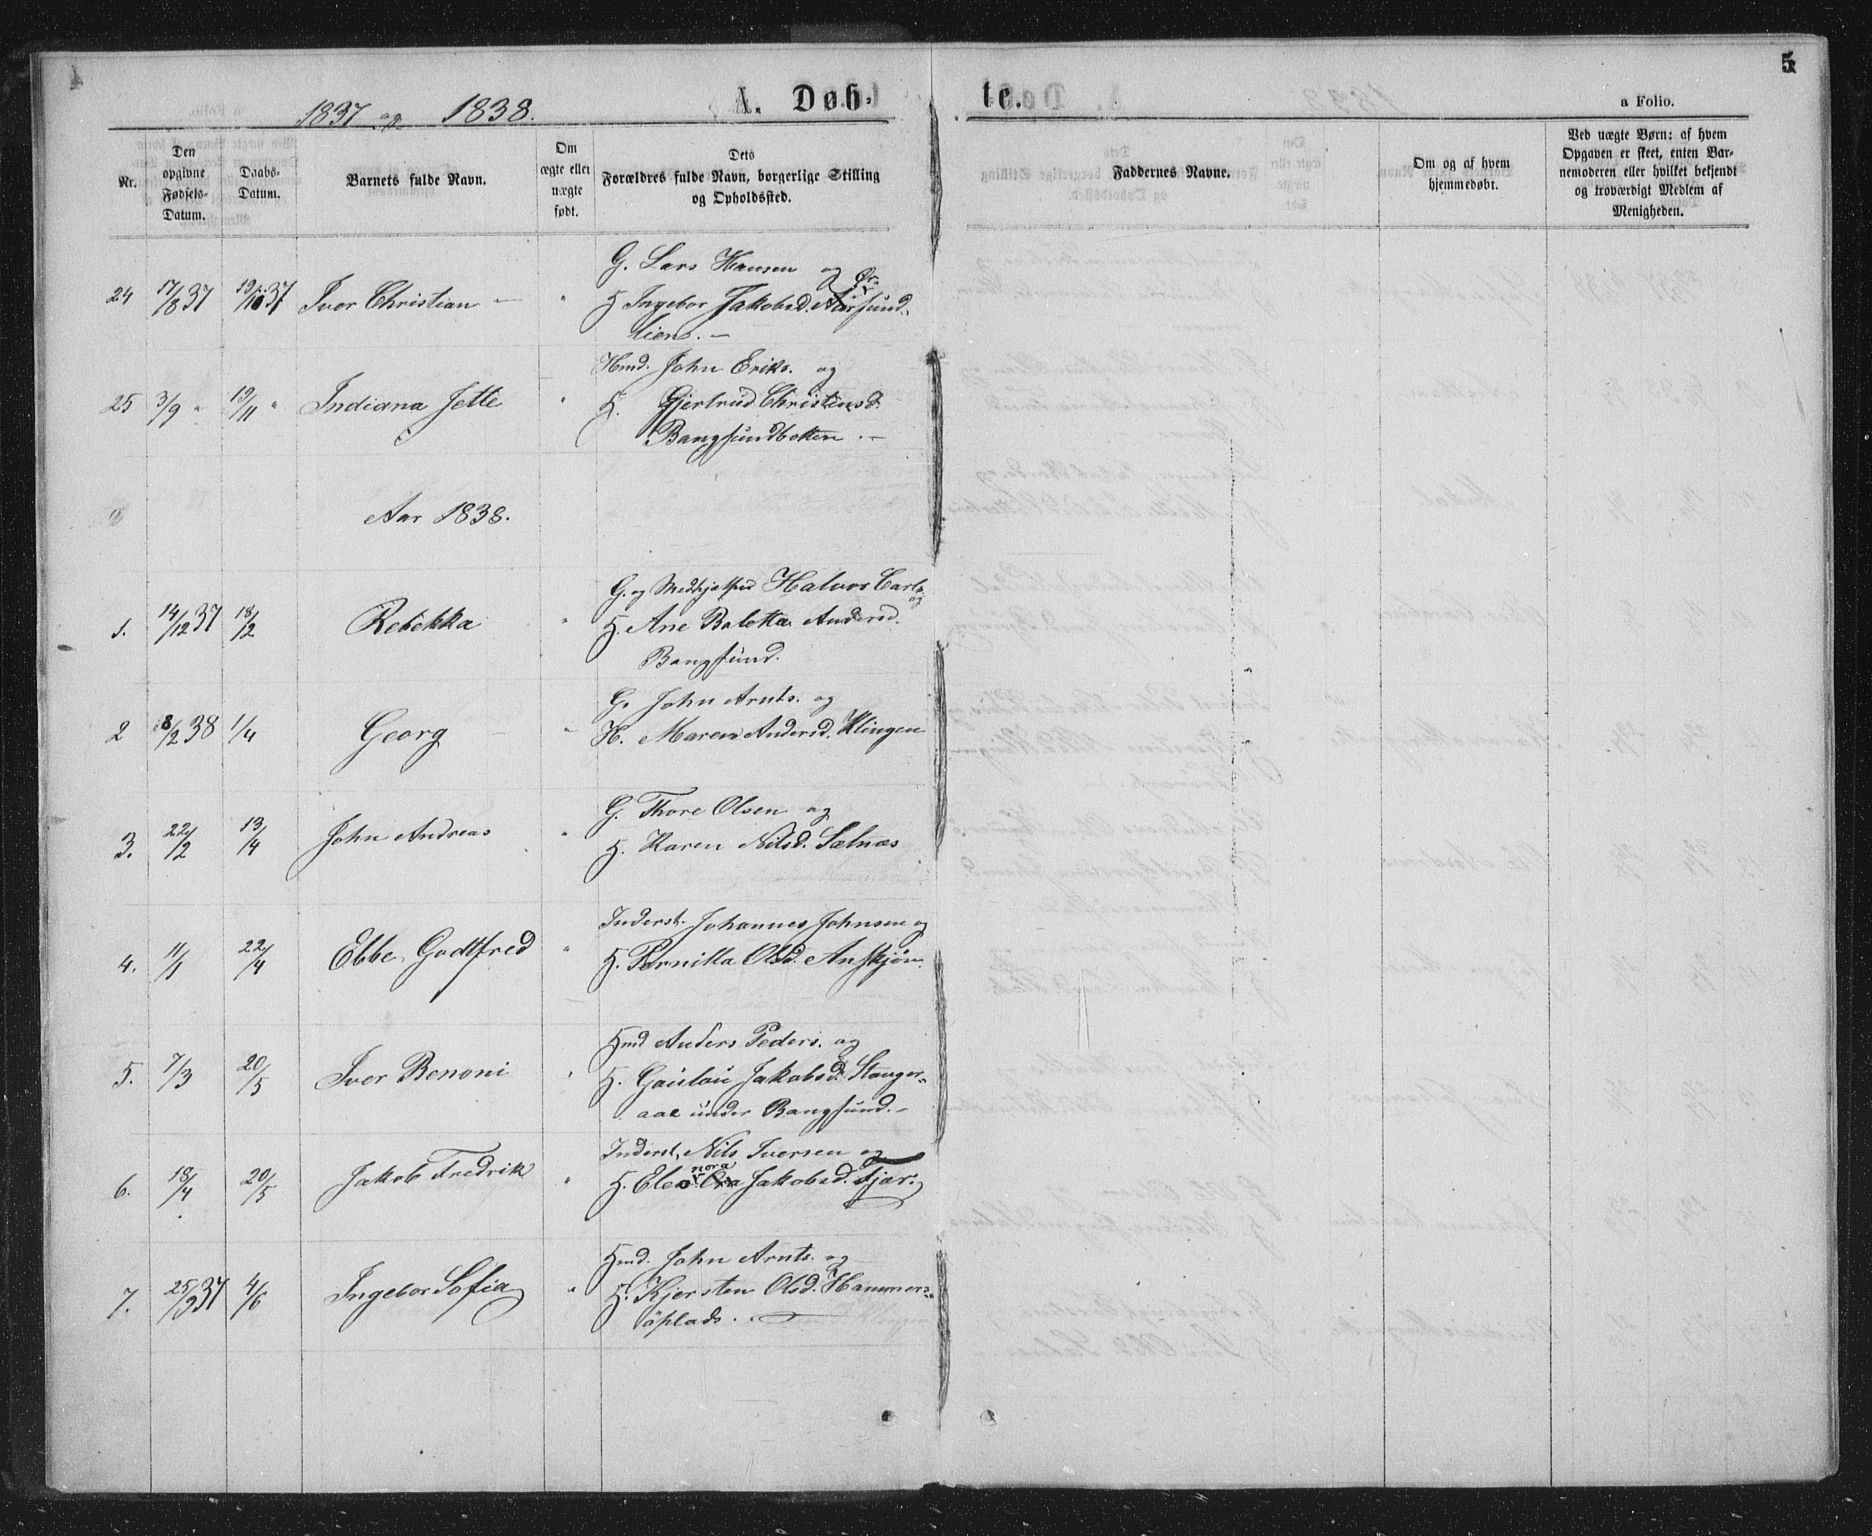 5
1837 og 1838.
A. Døb-
te.
a Folio.
Nr.
Den opgivne Fødsels-Datum.
Daabs-Datum.
Barnets fulde Navn.
Om ægte eller uægte født.
Dets Forældres fulde Navn, borgerlige Stilling og Opholdssted.
Faddernes Navne.
Om og af hvem hjemmedøbt.
Ved uægte Børn: af hvem Opgaven er skeet, enten Bar-nemoderen eller hvilket bekjendt og troværdigt Medlem af Menigheden.
G. Lars Hansen og
24 17/8 37 19/11 37 Iver Christian — " H Ingebor Jakobsd.
liens. —
Hmd. John Eriks. og
25 3/9 " 19/11 " Indiana Jette " H. Gjertrud Christensd.
Bangsundbotten. —
Aar 1838.
G. og Medhjelper Halvor Carls. og
1. 14/12 37 18/2 Rebekka " H. Ane Boletta Andersd.
Bangsund.
G. John Arnts. og
2 8/2 38 1/4 Georg " H. Maren Andersd. Klingen
G. Thore Olsen og
3. 22/2 13/4 John Andreas " H. Karen Nilsd. Sælnæs
Inderst. Johannes Johnsen og
4. 11/1 22/4 Ebbe Godtfred " H. Pernilla Olsd. Anskjøn.
Hmd Anders Peders. og
5. 7/3 20/5 Iver Benoni " H. Gaulau Jakobsd. Stanger-
aae under Bangsund. —
Inderst. Nils Iversen og
6. 18/4 20/5 Jakob Fredrik " H. Eleonora Jakobsd. Tjær.
Hmd. John Arnts. og
7. 25/9 37 4/6 Ingebor Sofia " H. Kjersten Olsd. Hammers-
öplads. —